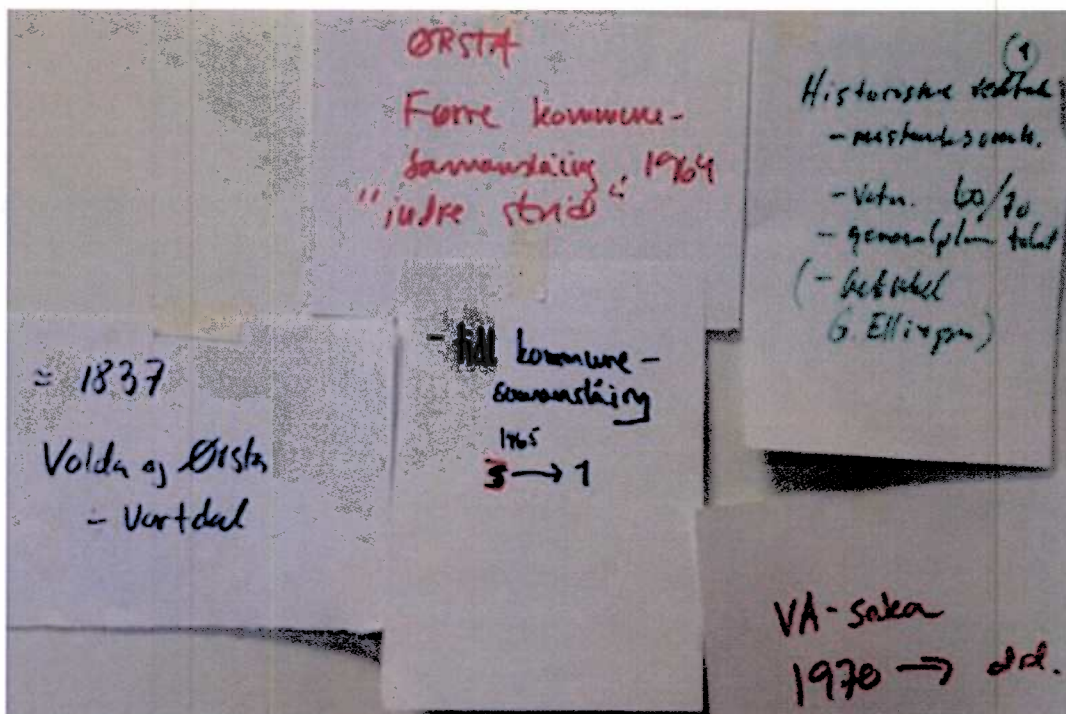 ØRSTA
Førre kommune-
samanslåing, 1964
"indre strid"
(1)
Historiske vedtak
-
- Vatn. 60/70
- generalplan
(-
G. Ellingsen)
= 1837
Volda og Ørsta
- Vartdal
- tidl kommune-
samanslåing
1965
3 → 1
VA-saka
1970 → d.d.